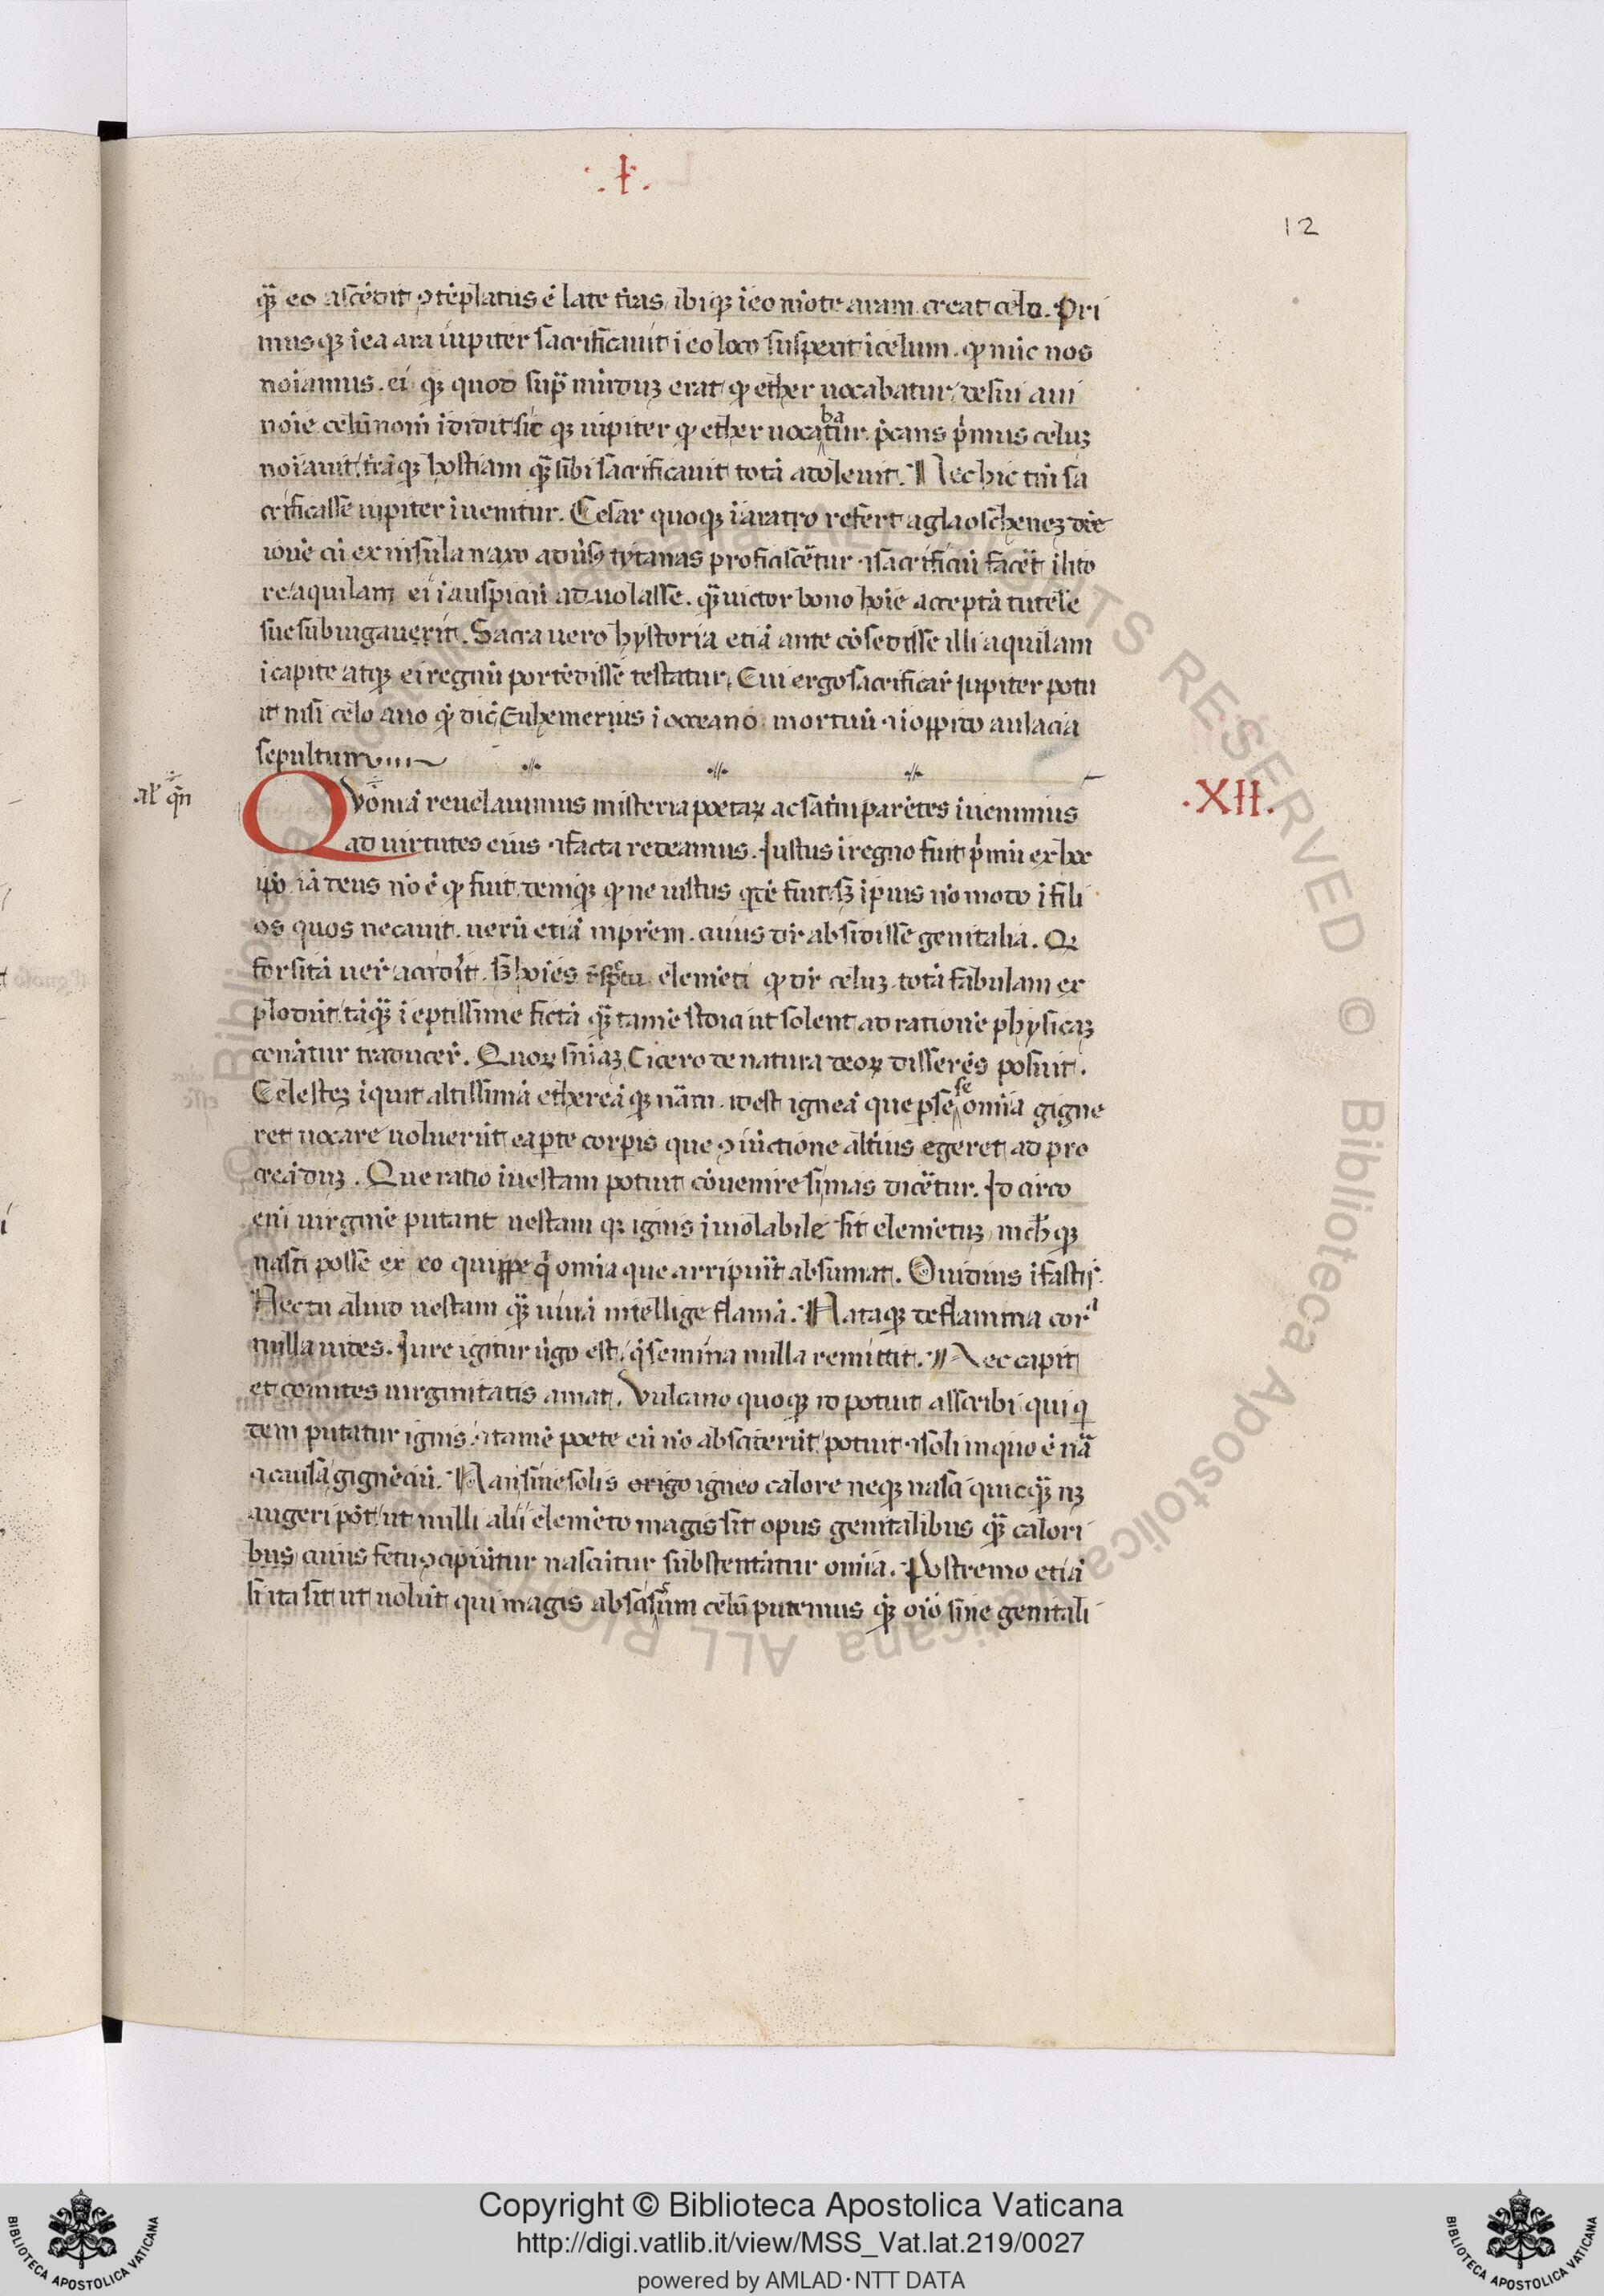 .I.
12
q̄ȝ eo ascēdit ꝯtēplatus ē late t̄ras ibiqȝ ī eo mōte aram creat celo. Pri
musqȝ ī ea ara iupiter sacrificauit ī eo loco suspexit ī celum. qd̄ nūc nos
noīamus. ei qȝ quod sup̄ mūduȝ erat qd̄ ether uocabatur, de sui aui
noīe celū nom̄ īdidit sic qȝ iupiter qd̄ ether uocabatur p̄cans p̄mus celuȝ
noīauit, eāqȝ hostiam q̄ȝ sibi sacrificauit totā adoleuit. Nec hic tm̄ sa
crificasse iupiter īuenitur. Cesar quoqȝ ī aratro refert aglaostheneȝ dice
iouē cū ex insula naxo aduersꝰ tytanas proficiscēt̄ur ⁊ sacrificiū facēt ī lito
re, aquilam ei ī auspiciū aduolasse. q̄ȝ uictor bono hoīe acceptā tutele
sue subiugauerit. Sacra uero hystoria etiā ante cōsedisse illi aquilam
ī capite atqȝ ei regnū portēdisse testatur. Cui ergo sacrificar̄ iupiter potu
it nisi celo auo qd̄ dic̄ Euhemerus ī occeano mortuū ⁊ ī oppido aulacia
sepultum
al' q̄n
.XII.
Quōniā reuelauimus misteria poetaꝝ ac saturni parētes īuenimus
ad uirtutes eius ⁊ facta redeamus. Iustus ī regno fuit p̄mū ex hoc
ip̄o iā deus nō ē qd̄ fuit, deniqȝ qd̄ ne iustus qdē fuit, sȝ īpius nō modo ī fili
os quos necauit. uerū etiā in prēm. cuius dr̄ abscidisse genitalia. Qd̄
forsitā uer̄ accidit. Sȝ hoīes respectu elemēti qd̄ dr̄ celuȝ totā fabulam ex
plodūt, tāq̄ȝ ī eptissime fictā q̄ȝ tamē stoici ut solent ad rationē physicaȝ
conātur traducer̄. Quoꝝ sn̄iaȝ Cicero de natura deoꝝ disserēs posuit.
Celesteȝ īquit altissimā ethereāqȝ nām. idest igneā que p se se omīa gigne
ret uocare uoluerūt ea parte corporis que ꝯiūctione alt̄ius egeret ad pro
creāduȝ. Que ratio ī uestam potuit cōuenire si mas dicēt̄ur. Idcirco
enī uirginē putant uestam qȝ ignis īuiolabile sit elemētuȝ nichilqȝ
nasci posse ex eo quippe q̄ omīa que arripuīt absumat. Ouidius ī fastis.
Nec tu aliud uestam q̄ȝ uiuā intellige flamā. Nataqȝ de flamma cor
nulla uides. Iure igitur u̇go est, q̄ semina nulla remittit. Nec capit
et comites uirginitatis amat. Vulcano quoqȝ id potuit asscribi qui qi
dem putatur ignis ⁊ tamē poete eū nō absciderūt, potuit ⁊ soli in quo ē nā
⁊ causā gignēciū. Nan sine solis origo igneo calore neqȝ nasci quicq̄ȝ nȝ
augeri pōt, ut nulli alii elemēto magis sit opus genitalibus q̄ȝ calori
bus, cuius fetu ꝯcipiūtur nascūtur substentātur omīa. Postremo etiā
si ita sit ut uolūt qui magis abscisum celū putemus q̄ȝ oīo sine genitali
Copyright © Biblioteca Apostolica Vaticana
http://digi.vatlib.it/view/MSS_Vat.lat.219/0027
powered by AMLAD·NTT DATA